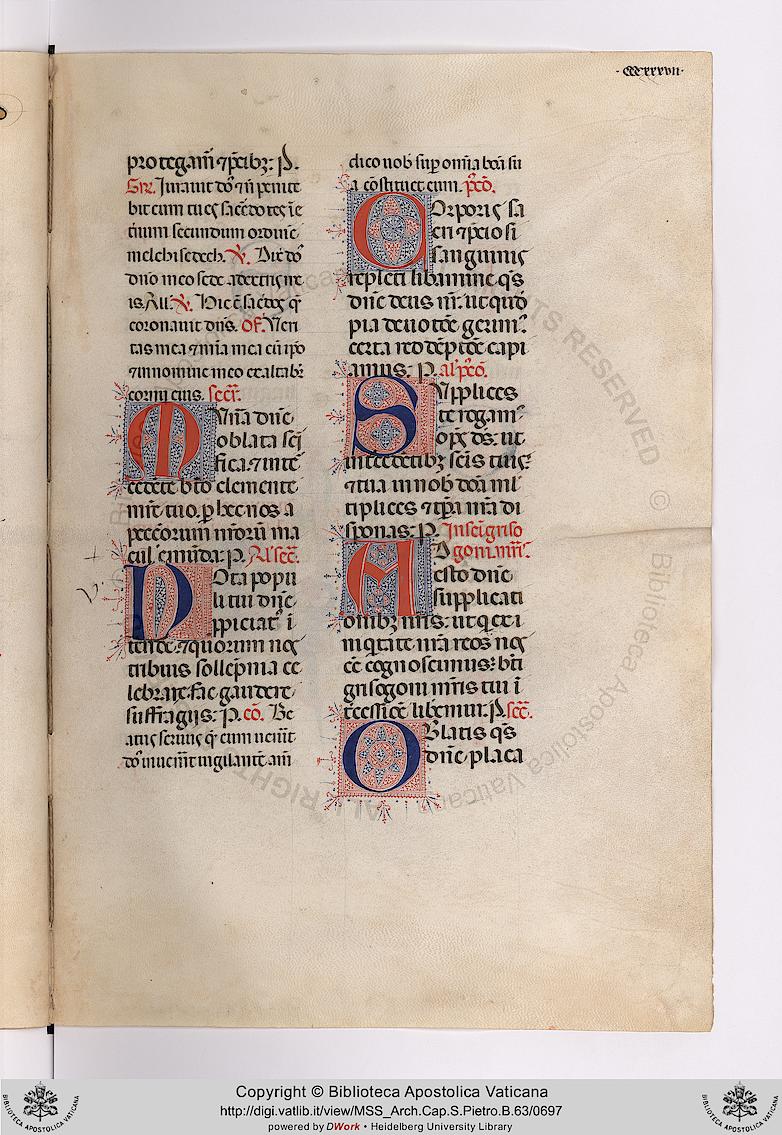 · CCCxxxvii ·
protegam̄ ⁊ p̄cibꝫ: P.
Gr̄. Iurauit dn̄s ⁊ nō penite
bit eum tu es sac̄dos in e
t̄num secundum ordinē
melchisedech. V̄. Dix̄ dn̄s
dn̄o meo sede a dextris me
is. All'a. V̄. Hic ē sac̄dos q̄
coronauit dn̄s. Of̄. Veri
tas mea ⁊ mia mea cū ipo
⁊ in nomine meo exaltabr̄
cornu eius. secr̄.
Munā dn̄e
oblata sci
fica: ⁊ inte
cedente bto clemente
mr̄e tuo. p̄ hec nos a
peccorum nr̄orū ma
cul' emūda: P. Al' sec̄.
Uota popu
li tui dn̄e
ppiciat' i
tende: ⁊ quorum nos
tribuis sollepnia ce
lebrare fac gaudere
suffragijs: P. cō. Be
atus seruus q̄ cum uen̄it
dn̄s inuen̄it uigilantē am̄
dico uob sup̄ omīa bona su
a cōstituet eum. p̄cō.
Corporis sa
cri ⁊ p̄ciosi
sanguinis
repleti libamine q̄s
dn̄e deus nr̄: ut quod
pia deuotōe gerim':
certa redēptōe capi
amus: P. al' p̄cō.
Supplices
te rogam'
opꝫ ds: ut
intercedētibꝫ scīs tuis:
⁊ tua in nob dona ml'
tiplices ⁊ tpa nr̄a di
sponas: P. In sc̄i griso
goni mr̄is.
Adesto dn̄e
supplicati
onibꝫ nr̄is: ut q̄ ex i
niquitate nr̄a reos nos
eē cognoscimus: bti
grisogoni mr̄is tui i
tercessiōe liberemur. P. sec̄.
Oblatis q̄s
dn̄e placa
Copyright © Biblioteca Apostolica Vaticana
http://digi.vatlib.it/view/MSS_Arch.Cap.S.Pietro.B.63/0697
powered by DWork • Heidelberg University Library